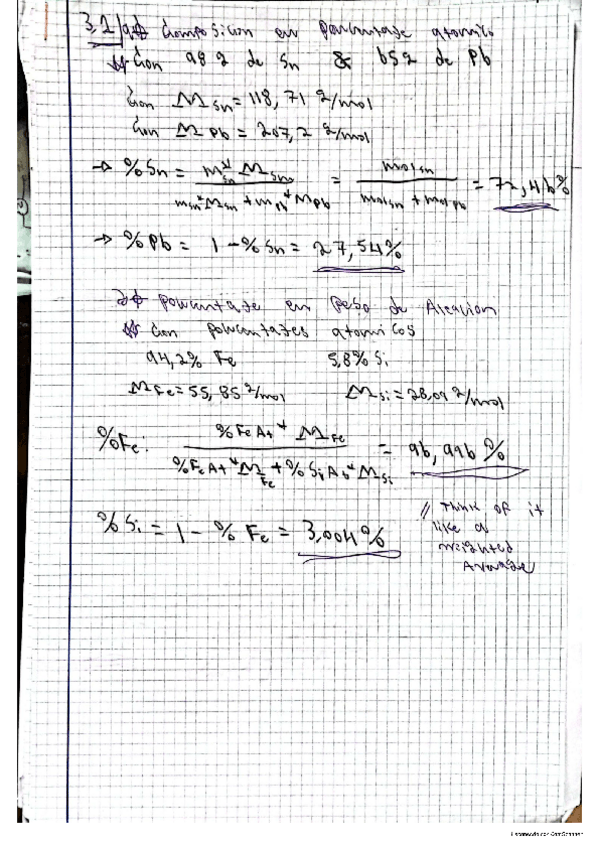 3,2/a) Composicion en porcentaje atomico
Con 98 g de Sn & 65g de Pb
Con M Sn = 118,71 g/mol
Con M Pb = 207,2 g/mol
→ %Sn = m Sn * M Sn / m Sn * M Sn + m Pb * M Pb = mol Sn / mol Sn + mol Pb = 72,46%
→ %Pb = 1 - % Sn = 27,54%
porcentaje en peso de Aleacion
Con porcentajes atomicos
94,2% Fe 5,8% Si
M Fe = 55,85 g/mol M Si = 28,09 g/mol
%Fe: %Fe At * M Fe / %Fe At * M Fe + % Si At * M Si = 96,996 %
% Si = 1 - % Fe = 3,004%
// Think of it
like a
weighted
Average